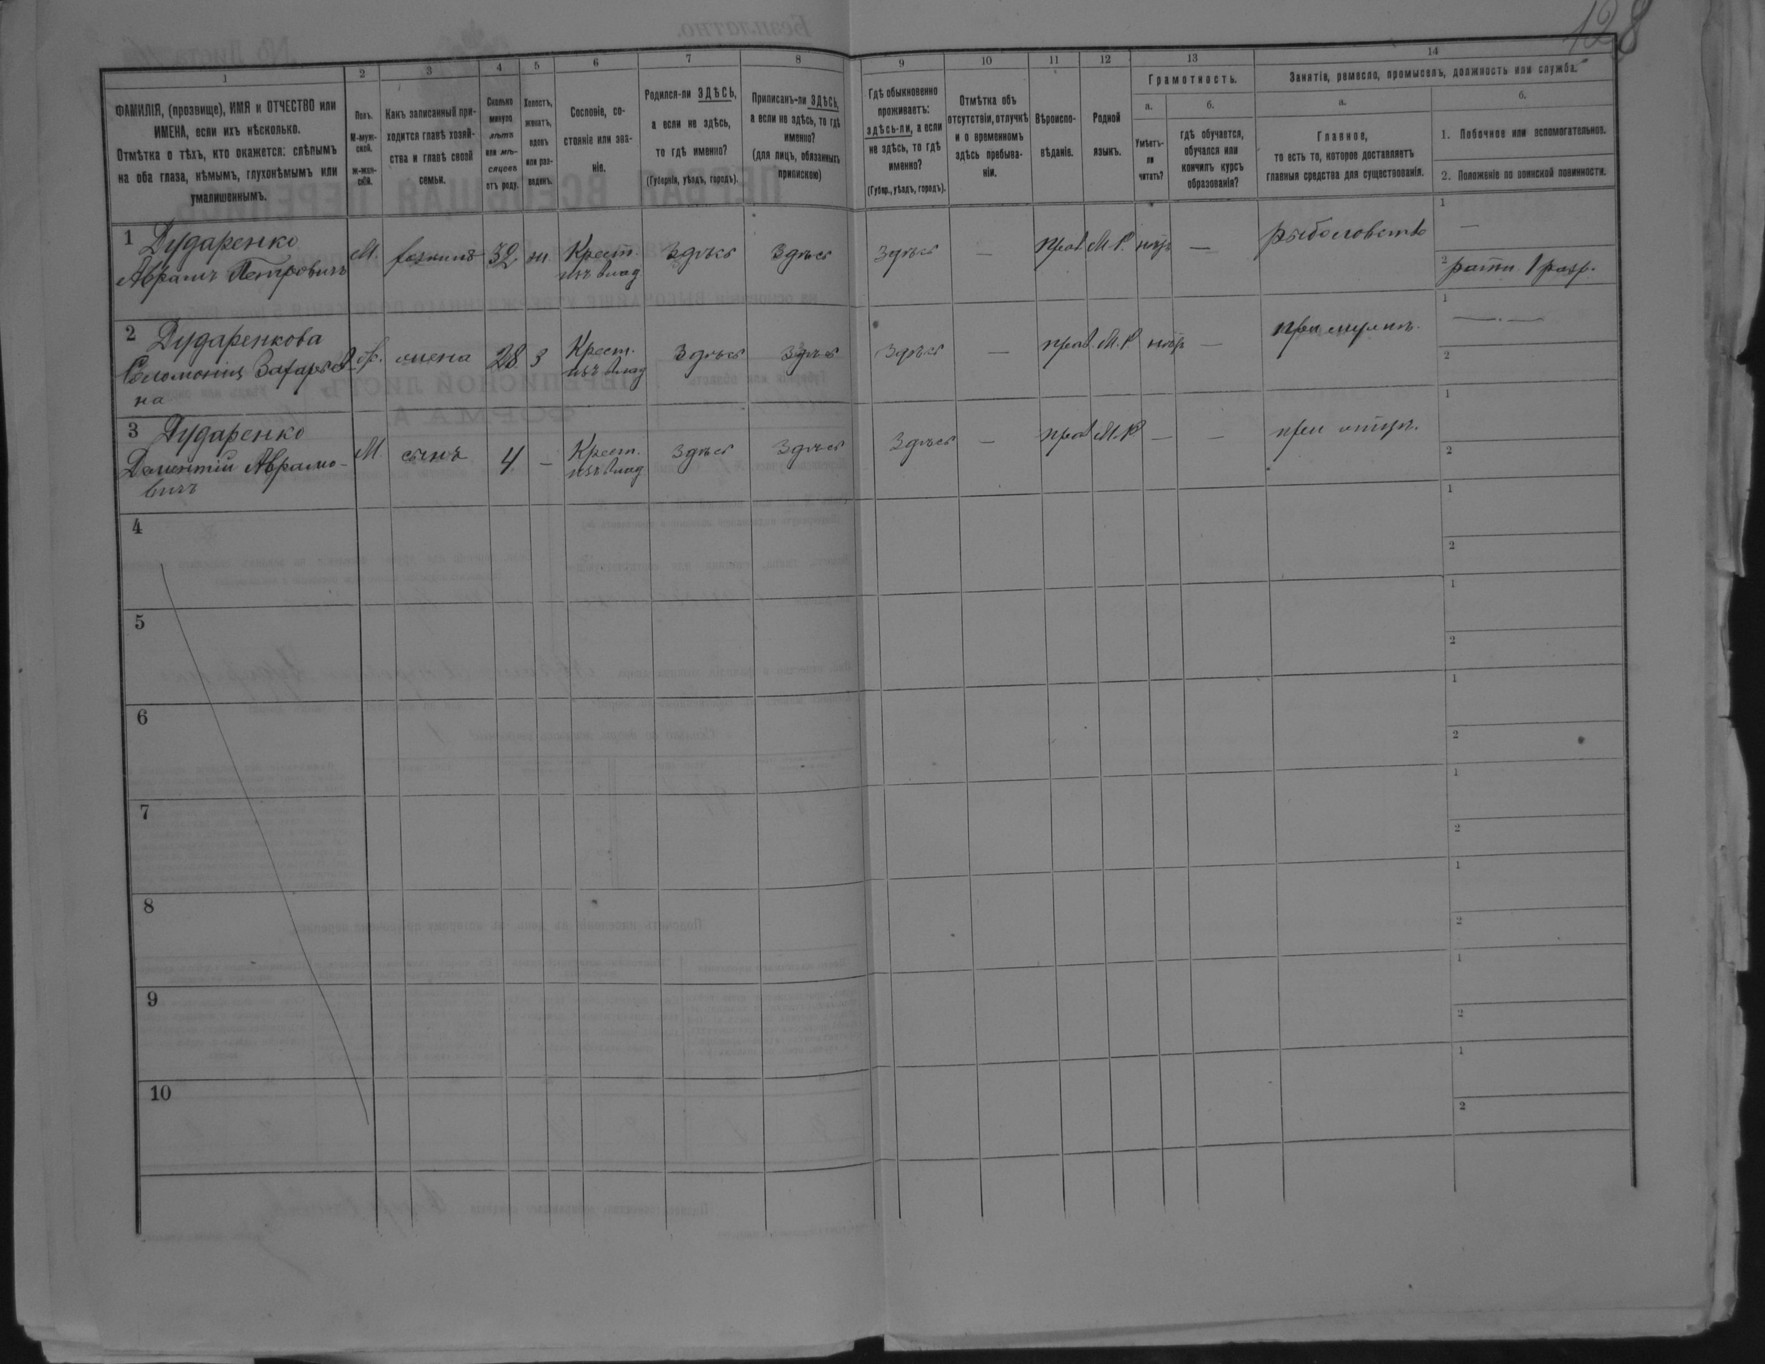 128
1
2
3
4
5
6
7
8
9
10
11
12
13
14
ФАМИЛІЯ, (прозвище), ИМЯ и ОТЧЕСТВО или
ИМЕНА, если ихъ нѣсколько.
Отмѣтка о тѣхъ, кто окажется: слѣпымъ
на оба глаза, нѣмымъ, глухонѣмымъ или
умалишеннымъ.
Полъ.
М-муж-
ской.
Ж-жен-
скій.
Какъ записанный при-
ходится главѣ хозяй-
ства и главѣ своей
семьи.
Сколько
минуло
лѣтъ
или мѣ-
сяцевъ
отъ роду.
Холостъ,
женатъ,
вдовъ
или раз-
веденъ.
Сословіе, со-
стояніе или зва-
ніе.
Родился-ли ЗДѢСЬ,
а если не здѣсь,
то гдѣ именно?
(Губернія, уѣздъ, городъ).
Приписанъ-ли ЗДѢСЬ,
а если не здѣсь, то гдѣ
именно?
(для лицъ, обязанныхъ
припискою)
Гдѣ обыкновенно
проживаетъ:
здѣсь-ли, а если
не здѣсь, то гдѣ
именно?
(Губер., уѣздъ, городъ).
Отмѣтка объ
отсутствіи, отлучкѣ
и о временномъ
здѣсь пребыва-
ніи.
Вѣроиспо-
вѣданіе.
Родной
языкъ.
Грамотность.
а.
Умѣетъ-
ли
читать?
б.
гдѣ обучается,
обучался или
кончилъ курсъ
образованія?
Занятіе, ремесло, промыселъ, должность или служба.
а.
Главное,
то есть то, которое доставляетъ
главныя средства для существованія.
б.
1. Побочное или вспомогательное.
2. Положеніе по воинской повинности.
1 Дударенко
Аврамъ Петровичъ
М. хозяинъ 32 ж Крест. изъ влад Здѣсь Здѣсь Здѣсь — прав. М.Р. нѣтъ — рыболовство
1 —
2 ратн. 1 разр.
2 Дударенкова
на
жена 28 з Крест. изъ влад Здѣсь Здѣсь Здѣсь — прав. М.Р. нѣтъ — при мужѣ
1 —
2
3 Дударенко
Дементій Аврамо-
вичъ
М. сынъ 4 — Крест. изъ влад Здѣсь Здѣсь Здѣсь — прав. М.Р. — — при отцѣ
1
2
4
1
2
5
1
2
6
1
2
7
1
2
8
1
2
9
1
2
10
1
2